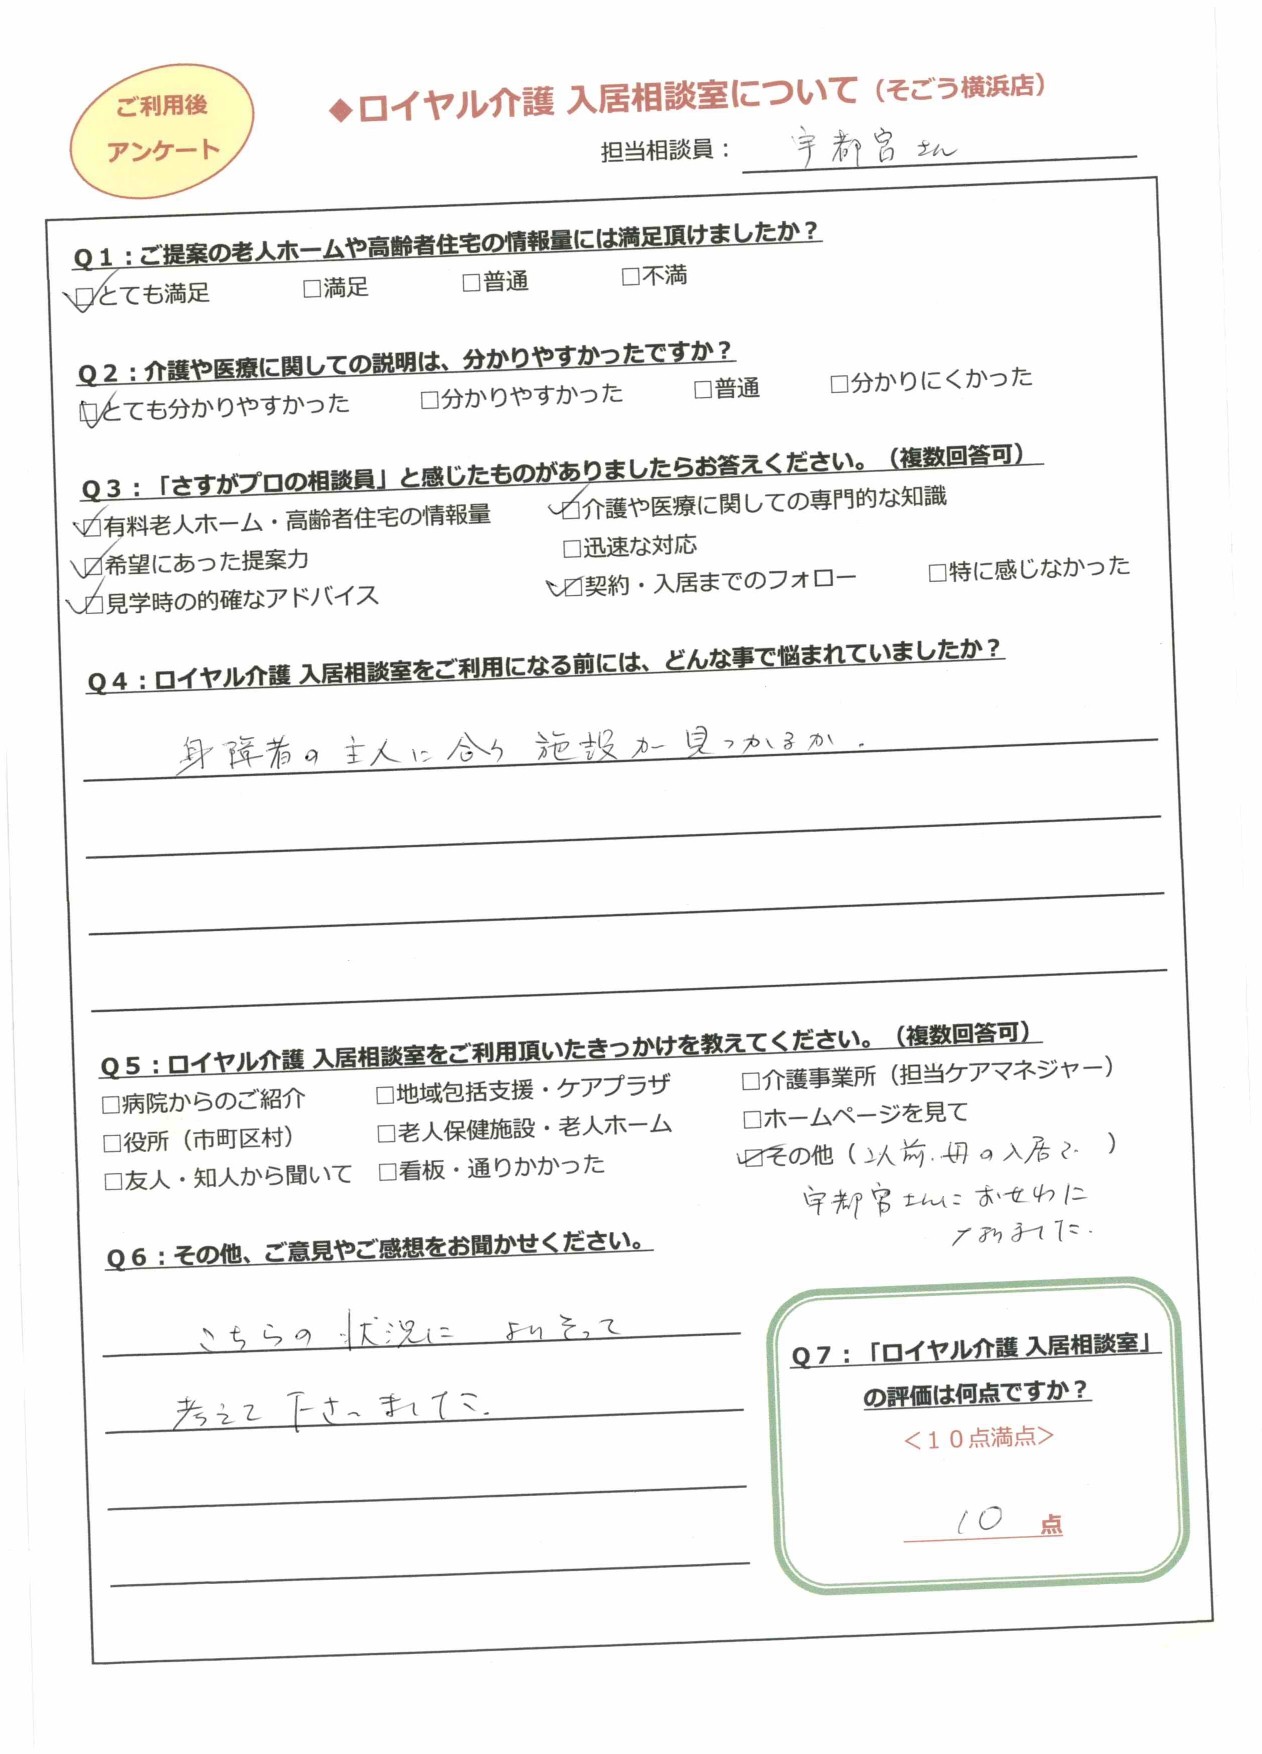 ご利用後
アンケート
◆ロイヤル介護 入居相談室について（そごう横浜店）
担当相談員： 宇都宮さん
Q１：ご提案の老人ホームや高齢者住宅の情報量には満足頂けましたか？
☑とても満足 □満足 □普通 □不満
Q２：介護や医療に関しての説明は、分かりやすかったですか？
☑とても分かりやすかった □分かりやすかった □普通 □分かりにくかった
Q３：「さすがプロの相談員」と感じたものがありましたらお答えください。（複数回答可）
☑有料老人ホーム・高齢者住宅の情報量 ☑介護や医療に関しての専門的な知識
☑希望にあった提案力 □迅速な対応
☑見学時の的確なアドバイス ☑契約・入居までのフォロー □特に感じなかった
Q４：ロイヤル介護 入居相談室をご利用になる前には、どんな事で悩まれていましたか？
身障者の主人に合う施設が見つかるか.
Q５：ロイヤル介護 入居相談室をご利用頂いたきっかけを教えてください。（複数回答可）
□病院からのご紹介 □地域包括支援・ケアプラザ □介護事業所（担当ケアマネジャー）
□役所（市町区村） □老人保健施設・老人ホーム □ホームページを見て
□友人・知人から聞いて □看板・通りかかった ☑その他（以前.母の入居で ）
宇都宮さんにおせわに
なりました.
Q６：その他、ご意見やご感想をお聞かせください。
こちらの状況に よりそって
考えて下さいました.
Q７：「ロイヤル介護 入居相談室」
の評価は何点ですか？
＜１０点満点＞
10 点